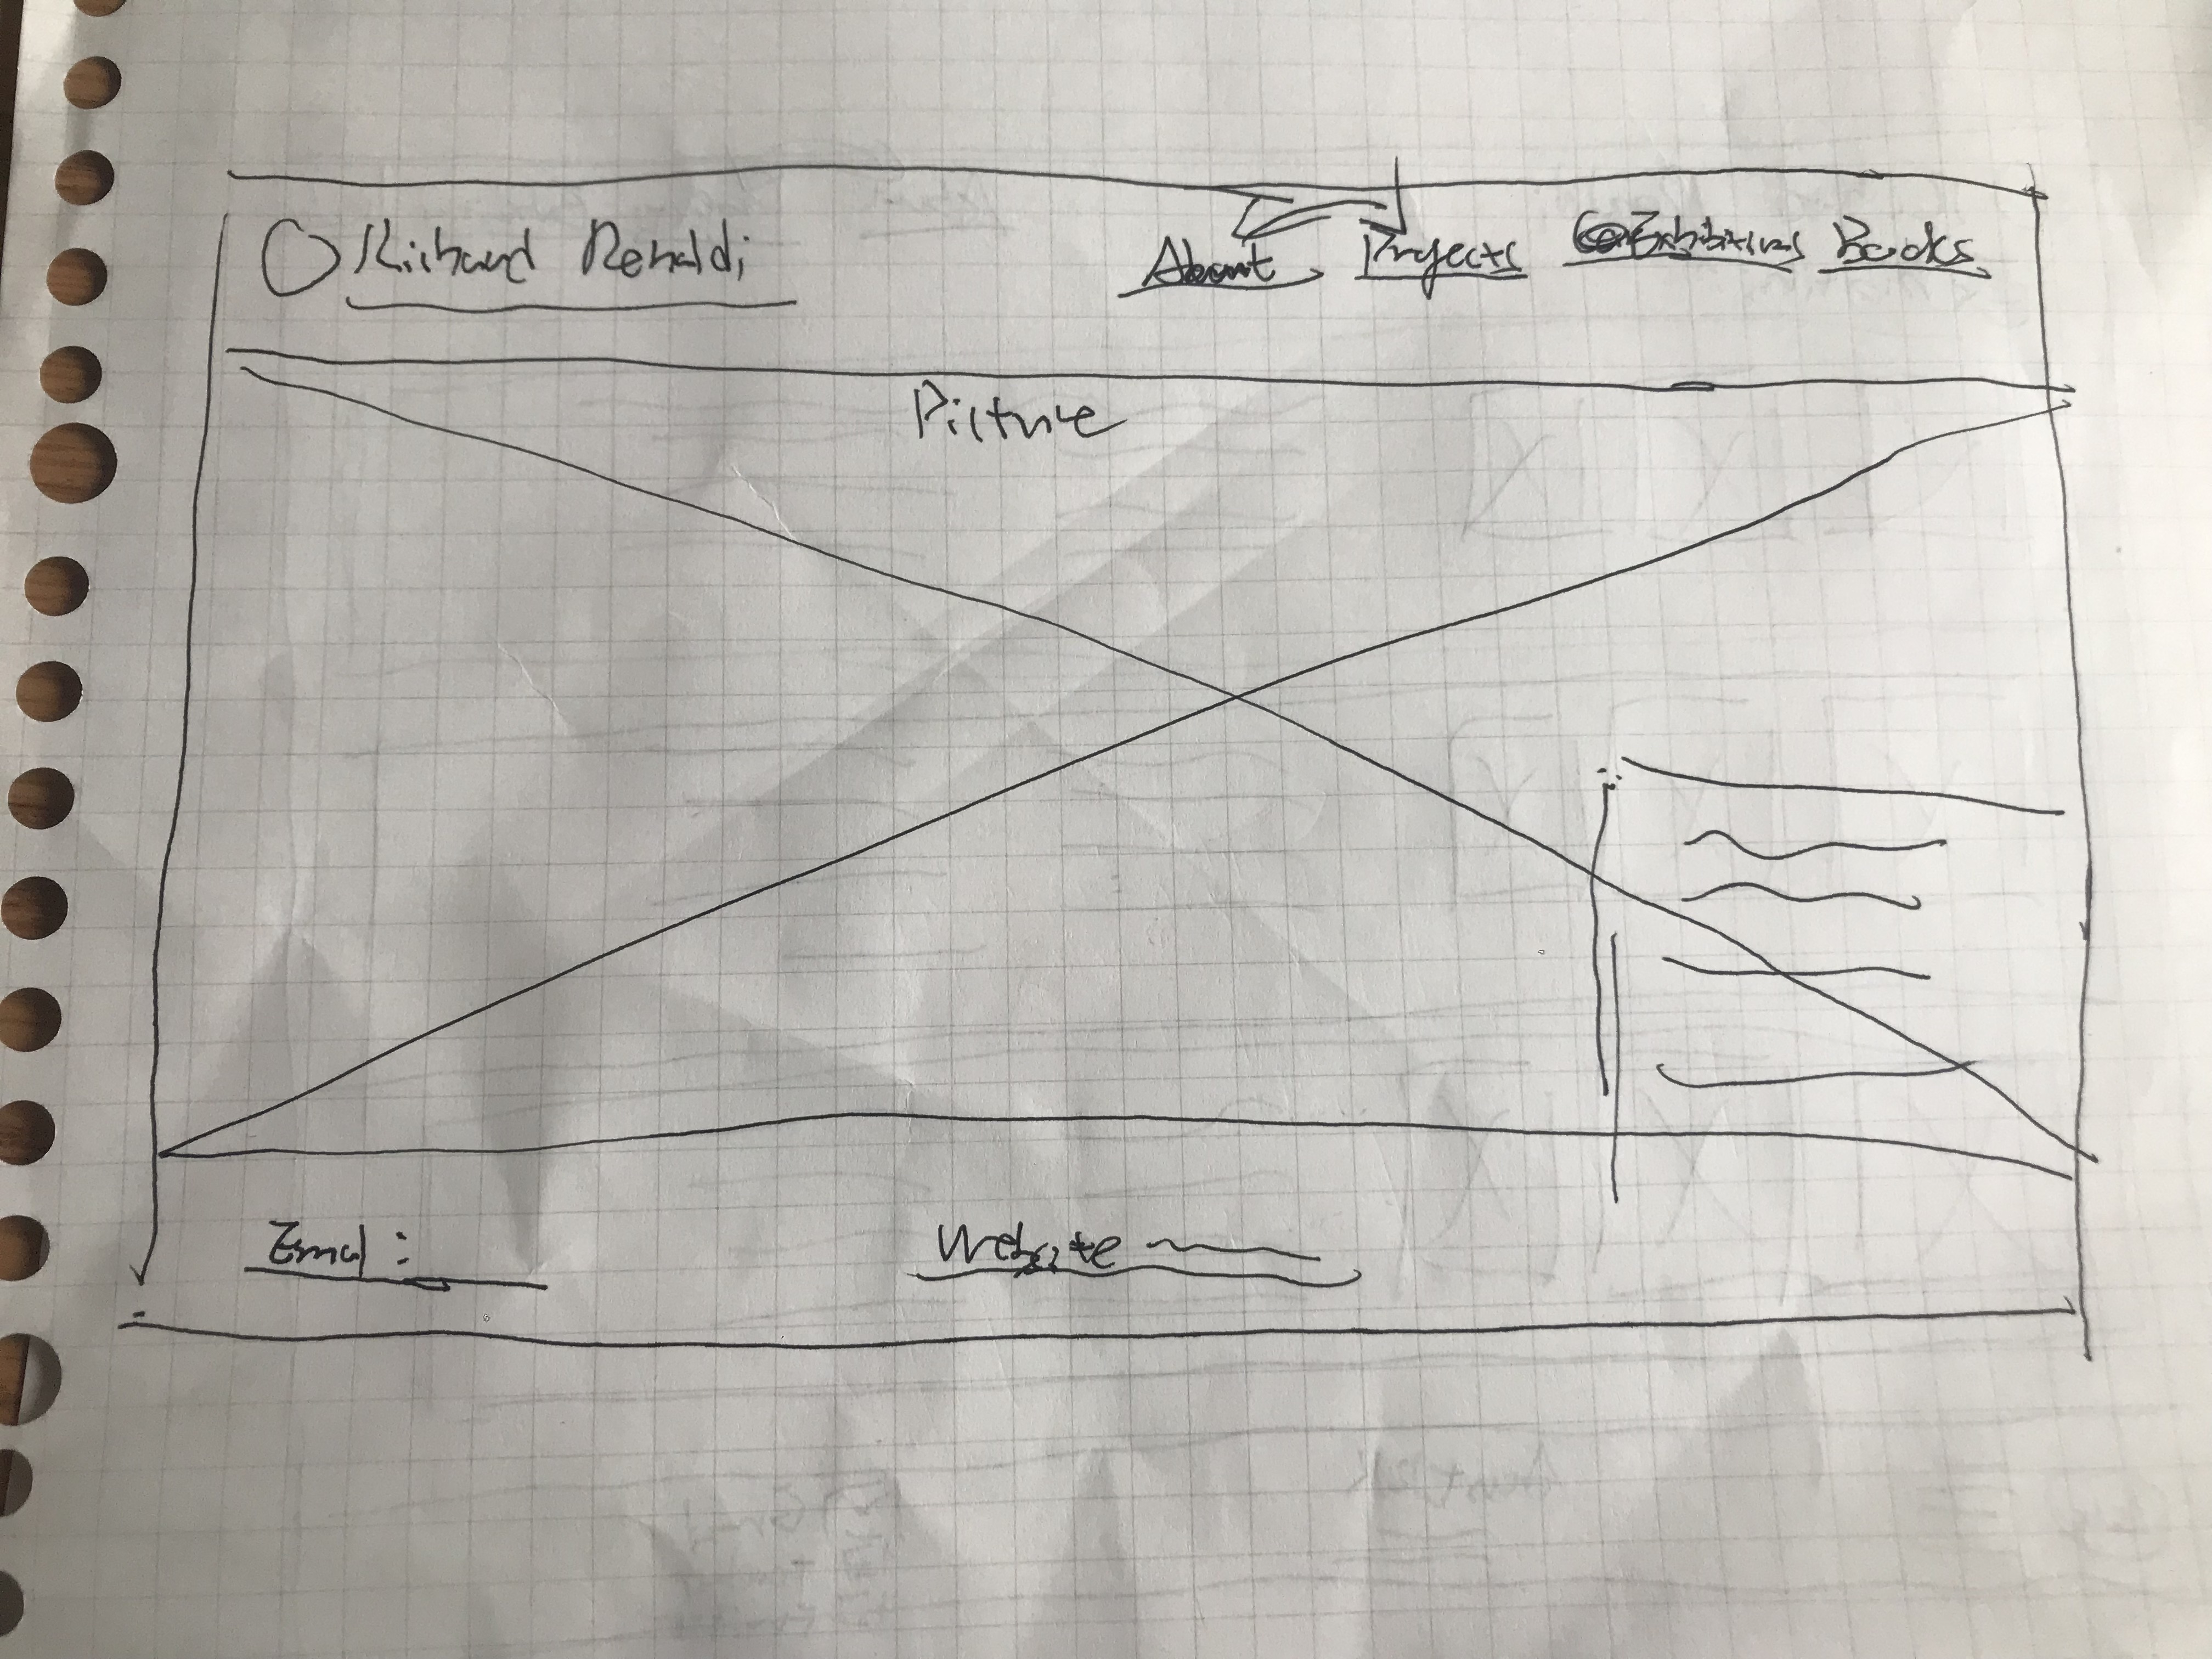 Richard Renaldi
About Projects Exhibitions Books
Picture
Email :
Website